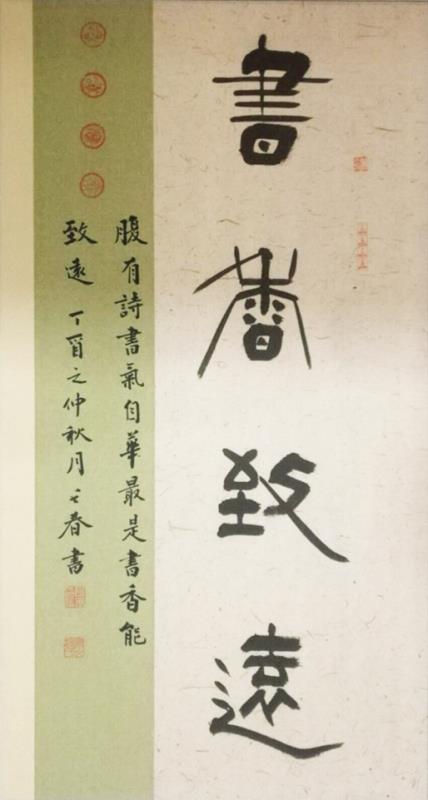 書香致遠
腹有詩書氣自華最是書香能
致遠 丁酉之仲秋月 春書